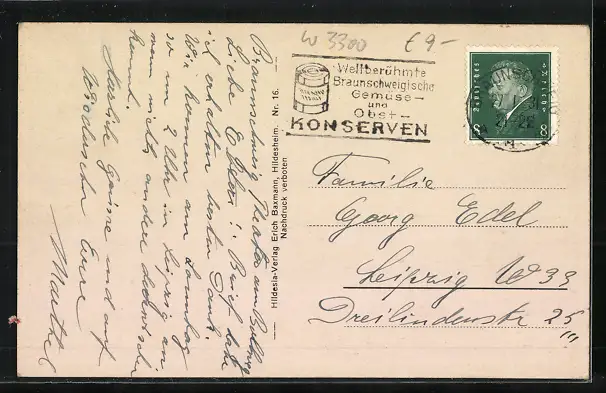 W 3300
€ 9-
Weltberühmte
Braunschweigische
Gemüse-
und
Obst-
KONSERVEN
DEUTSCHES REICH
8 8
Familie
Georg Edel
Leipzig W 33
Dreilindenstr 25 III
Hildesia-Verlag Erich Baxmann, Hildesheim. Nr. 16.
Nachdruck verboten
Braunschweig,
liebe Edels! Brief habe
ich erhalten besten Dank.
Wir kommen am Sonntag
so um 2 Uhr in Leipzig an
wenn nichts anders dazwischen
kommt.
Herzliche Grüsse und auf
Wiedersehn Eure